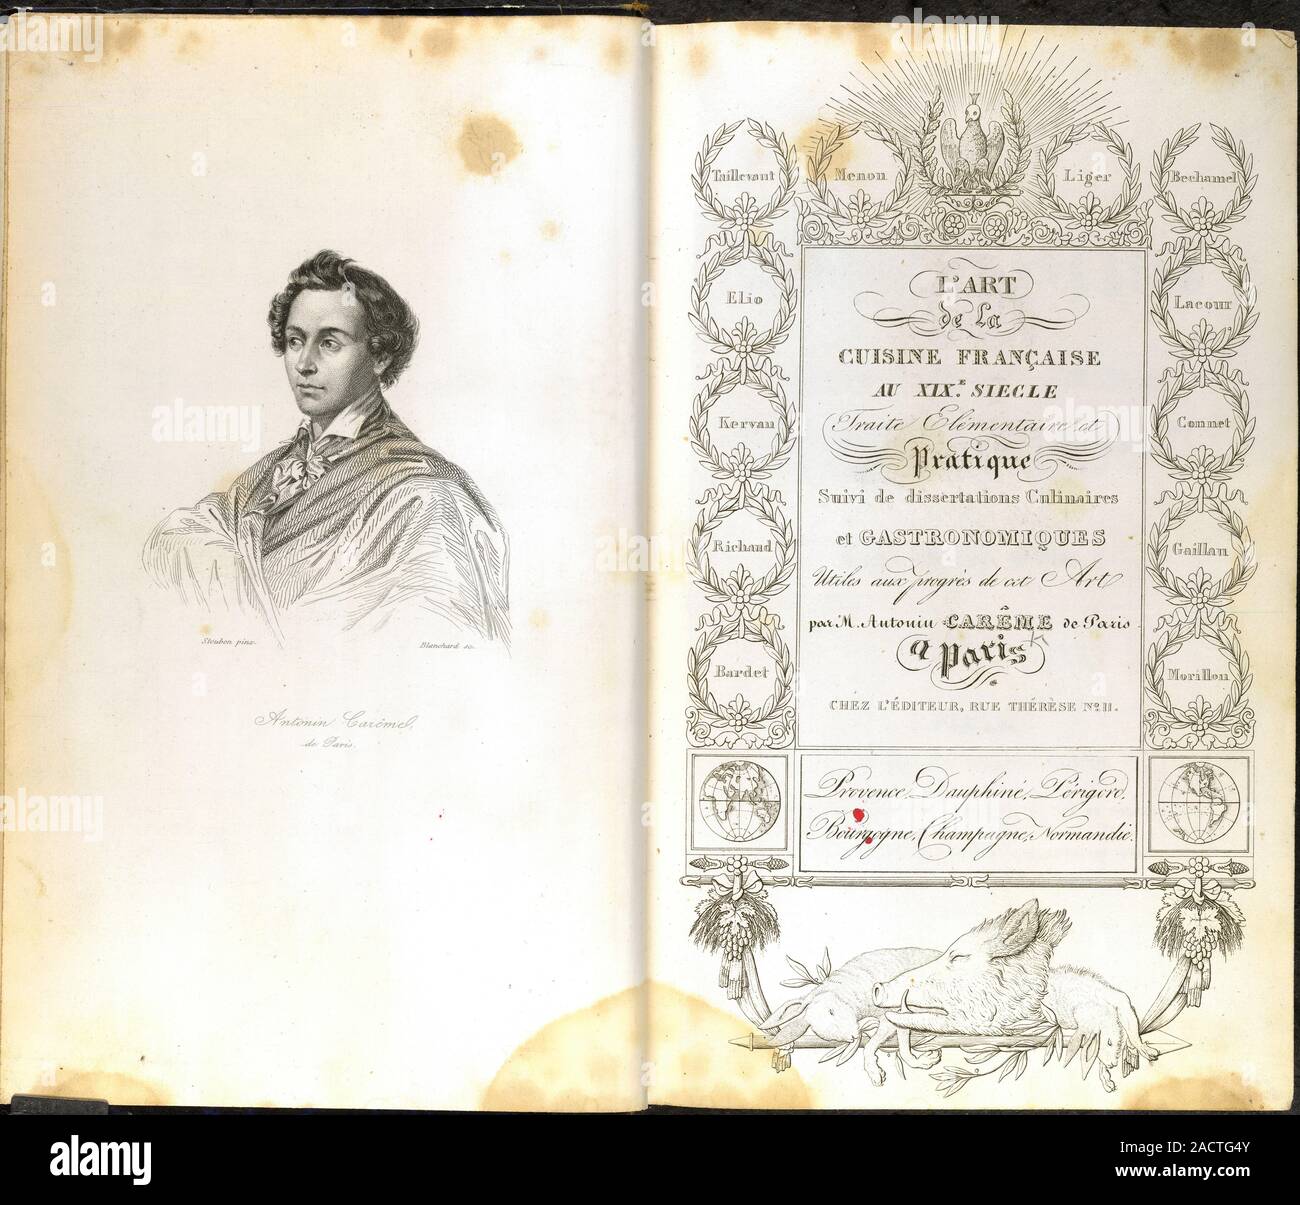 Steubon pinx.
Blanchard sc.
Antonin Carême,
de Paris.
Taillevant
Menon
Liger
Bechamel
Elio
Lacour
Kervan
Connet
Richaud
Gaillau
Bardet
Morillon
L'ART
de la
CUISINE FRANÇAISE
AU XIX.E SIECLE
Traité Elémentaire et
Pratique
Suivi de dissertations Culinaires
et GASTRONOMIQUES
Utiles aux progrès de cet Art
par M. Antonin CARÊME de Paris.
a Paris
CHEZ L'ÉDITEUR, RUE THÉRÈSE No. 11.
Provence, Dauphiné, Périgord,
Bourgogne, Champagne, Normandie.
alamy
Image ID: 2ACTG4Y
www.alamy.com